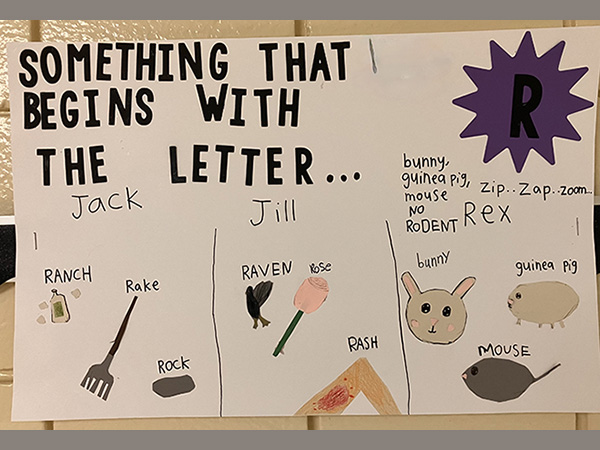 SOMETHING THAT
BEGINS WITH
THE LETTER...
R
Jack
Jill
bunny,
guinea pig,
mouse
NO
RODENT
zip.. zap.. zoom...
Rex
RANCH
Rake
ROCK
RAVEN
rose
RASH
bunny
guinea pig
MOUSE